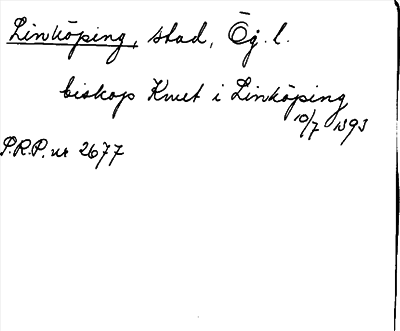 Linköping, stad, Ög. l.
biskop Knut i Linköping
10/7 1393
P.R.P. nr 2677